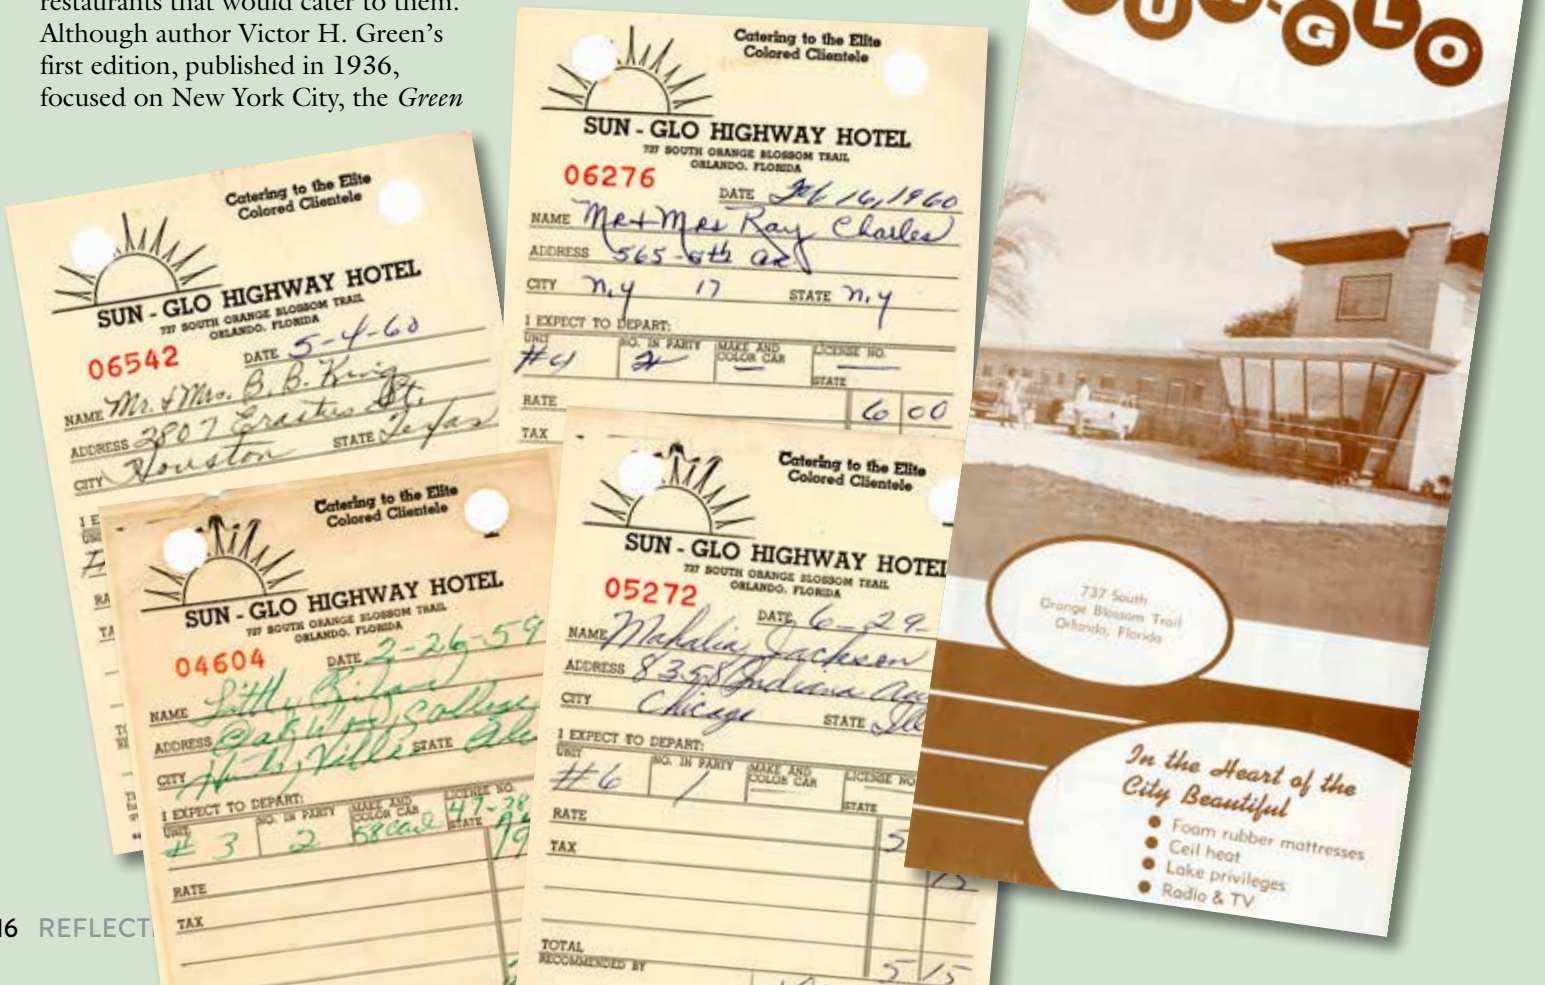 restaurants that would cater to them.
Although author Victor H. Green's
first edition, published in 1936,
focused on New York City, the Green
Catering to the Elite
Colored Clientele
SUN - GLO HIGHWAY HOTEL
737 SOUTH ORANGE BLOSSOM TRAIL
ORLANDO, FLORIDA
06542
DATE 5-4-60
NAME Mr. & Mrs. B. B. King
ADDRESS 2807 Erastus St.
CITY Houston STATE Texas
I E
RA
TA
Catering to the Elite
Colored Clientele
SUN - GLO HIGHWAY HOTEL
737 SOUTH ORANGE BLOSSOM TRAIL
ORLANDO, FLORIDA
06276
DATE Feb 16, 1960
NAME Mr + Mrs Ray Charles
ADDRESS 565
CITY N.Y 17 STATE N.Y
I EXPECT TO DEPART:
UNIT NO. IN PARTY MAKE AND COLOR CAR LICENSE NO.
#4 2
STATE
RATE 6 00
TAX
Catering to the Elite
Colored Clientele
SUN - GLO HIGHWAY HOTEL
737 SOUTH ORANGE BLOSSOM TRAIL
ORLANDO, FLORIDA
04604
DATE 2-26-59
NAME Little
ADDRESS College
CITY STATE
I EXPECT TO DEPART:
UNIT NO. IN PARTY MAKE AND COLOR CAR LICENSE NO.
# 3 2 58
STATE
RATE
TAX
Catering to the Elite
Colored Clientele
SUN - GLO HIGHWAY HOTEL
737 SOUTH ORANGE BLOSSOM TRAIL
ORLANDO, FLORIDA
05272
DATE 6-29-
NAME Mahalia Jackson
ADDRESS 8358 Indiana Ave
CITY Chicago STATE Ill
I EXPECT TO DEPART:
UNIT NO. IN PARTY MAKE AND COLOR CAR LICENSE NO
#6 1
STATE
RATE 5
TAX 15
TOTAL 5 15
RECOMMENDED BY
SUN-GLO
737 South
Orange Blossom Trail
Orlando, Florida
In the Heart of the
City Beautiful
Foam rubber mattresses
Ceil heat
Lake privileges
Radio & TV
16 REFLECTI